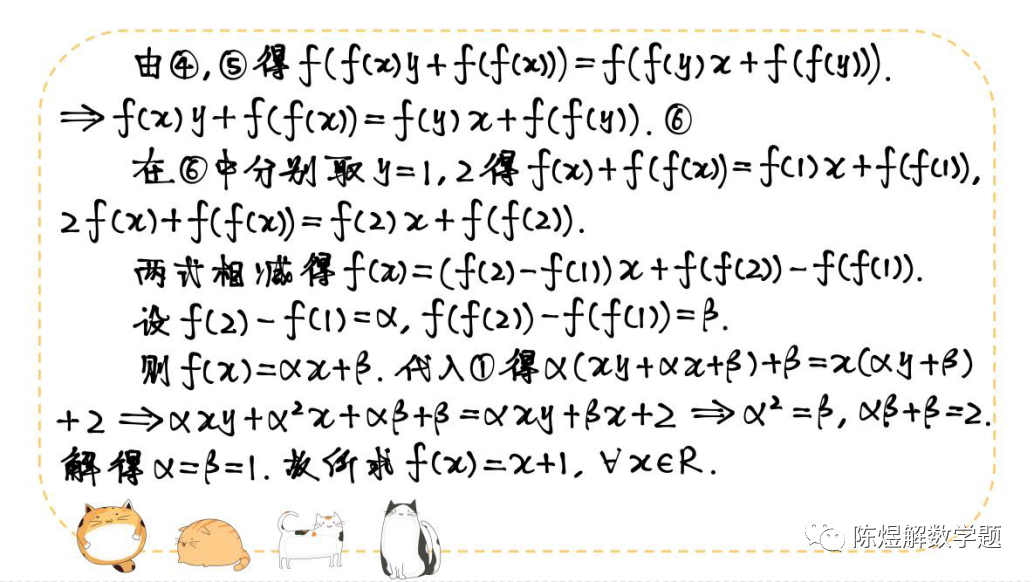 由④,⑤得f(f(x)y+f(f(x)))=f(f(y)x+f(f(y))).
⇒f(x)y+f(f(x))=f(y)x+f(f(y)).⑥
在⑥中分别取y=1,2得f(x)+f(f(x))=f(1)x+f(f(1)),
2f(x)+f(f(x))=f(2)x+f(f(2)).
两式相减得f(x)=(f(2)-f(1))x+f(f(2))-f(f(1)).
设f(2)-f(1)=α,f(f(2))-f(f(1))=β.
则f(x)=αx+β.代入①得α(xy+αx+β)+β=x(αy+β)
+2⇒αxy+α²x+αβ+β=αxy+βx+2⇒α²=β,αβ+β=2.
解得α=β=1.故所求f(x)=x+1,∀x∈R.
陈煜解数学题